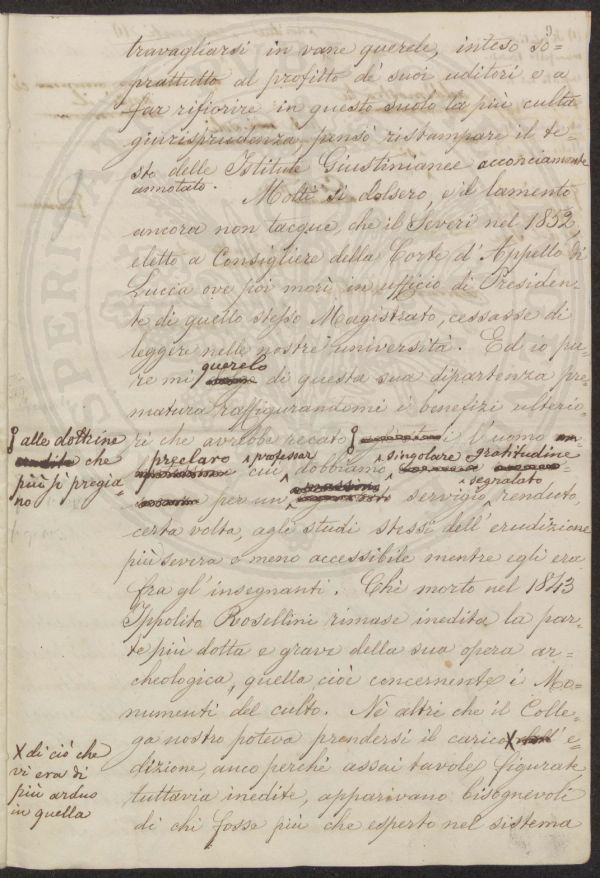 travagliarsi in vane querele, inteso so=
prattutto al profitto de' suoi uditori e a
far rifiorire in questo suolo la più culta
giurisprudenza, pensò ristampare il te=
sto delle Istitute Giustinianee acconciamente
annotato.
Molti si dolsero, e il lamento
ancora non tacque, che il Severi nel 1852,
eletto a Consigliere della Corte d'Appello di
Lucca ove poi morì in ufficio di Presiden=
te di quello stesso Magistrato, cessasse di
leggere nelle nostre università. Ed io pu=
re mi querelo di questa sua dipartenza pre=
matura raffigurandomi i benefizi ulterio=
ri che avrebbe recato
alle dottrine
che
più si pregia=
no
l'uomo
preclaro professor cui dobbiamo singolare gratitudine
per un segnalato servigio renduto,
certa volta, agli studi stessi dell'erudizione
più severa e meno accessibile mentre egli era
fra gl'insegnanti. Chè morto nel 1843
Ippolito Rosellini rimase inedita la par=
te più dotta e grave della sua opera ar=
cheologica, quella cioè concernente i Mo=
numenti del culto. Nè altri che il Colle=
ga nostro poteva prendersi il carico X
X di ciò che
vi era di
più arduo
in quella
e=
dizione, anco perchè assai tavole figurate,
tuttavia inedite, apparivano bisognevoli
di chi fosse più che esperto nel sistema